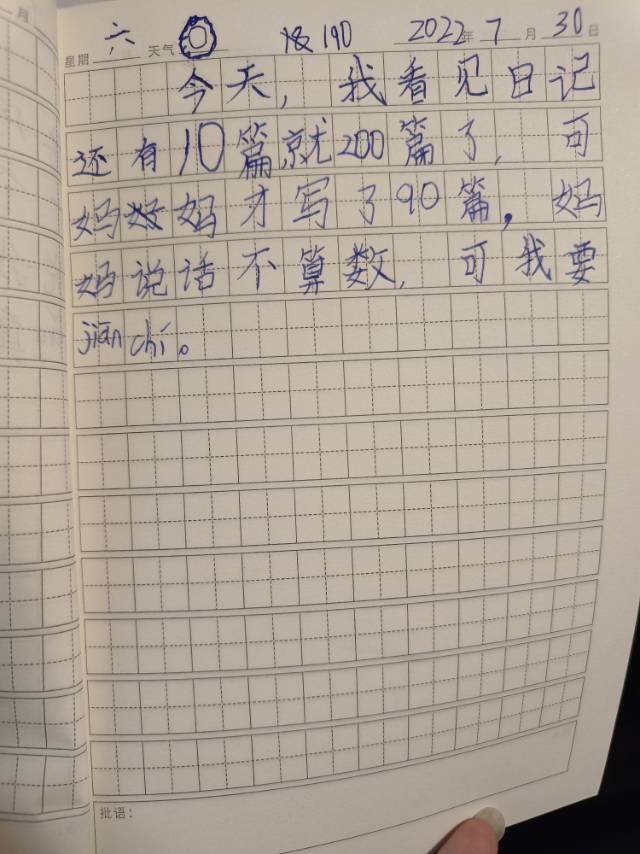 月
星期 六 天气 190 2022年 7月 30日
今天，我看见日记
还有10篇,就200篇了，可
妈妈才写了90篇，妈
妈说话不算数，可我要
jian chí。
批语：